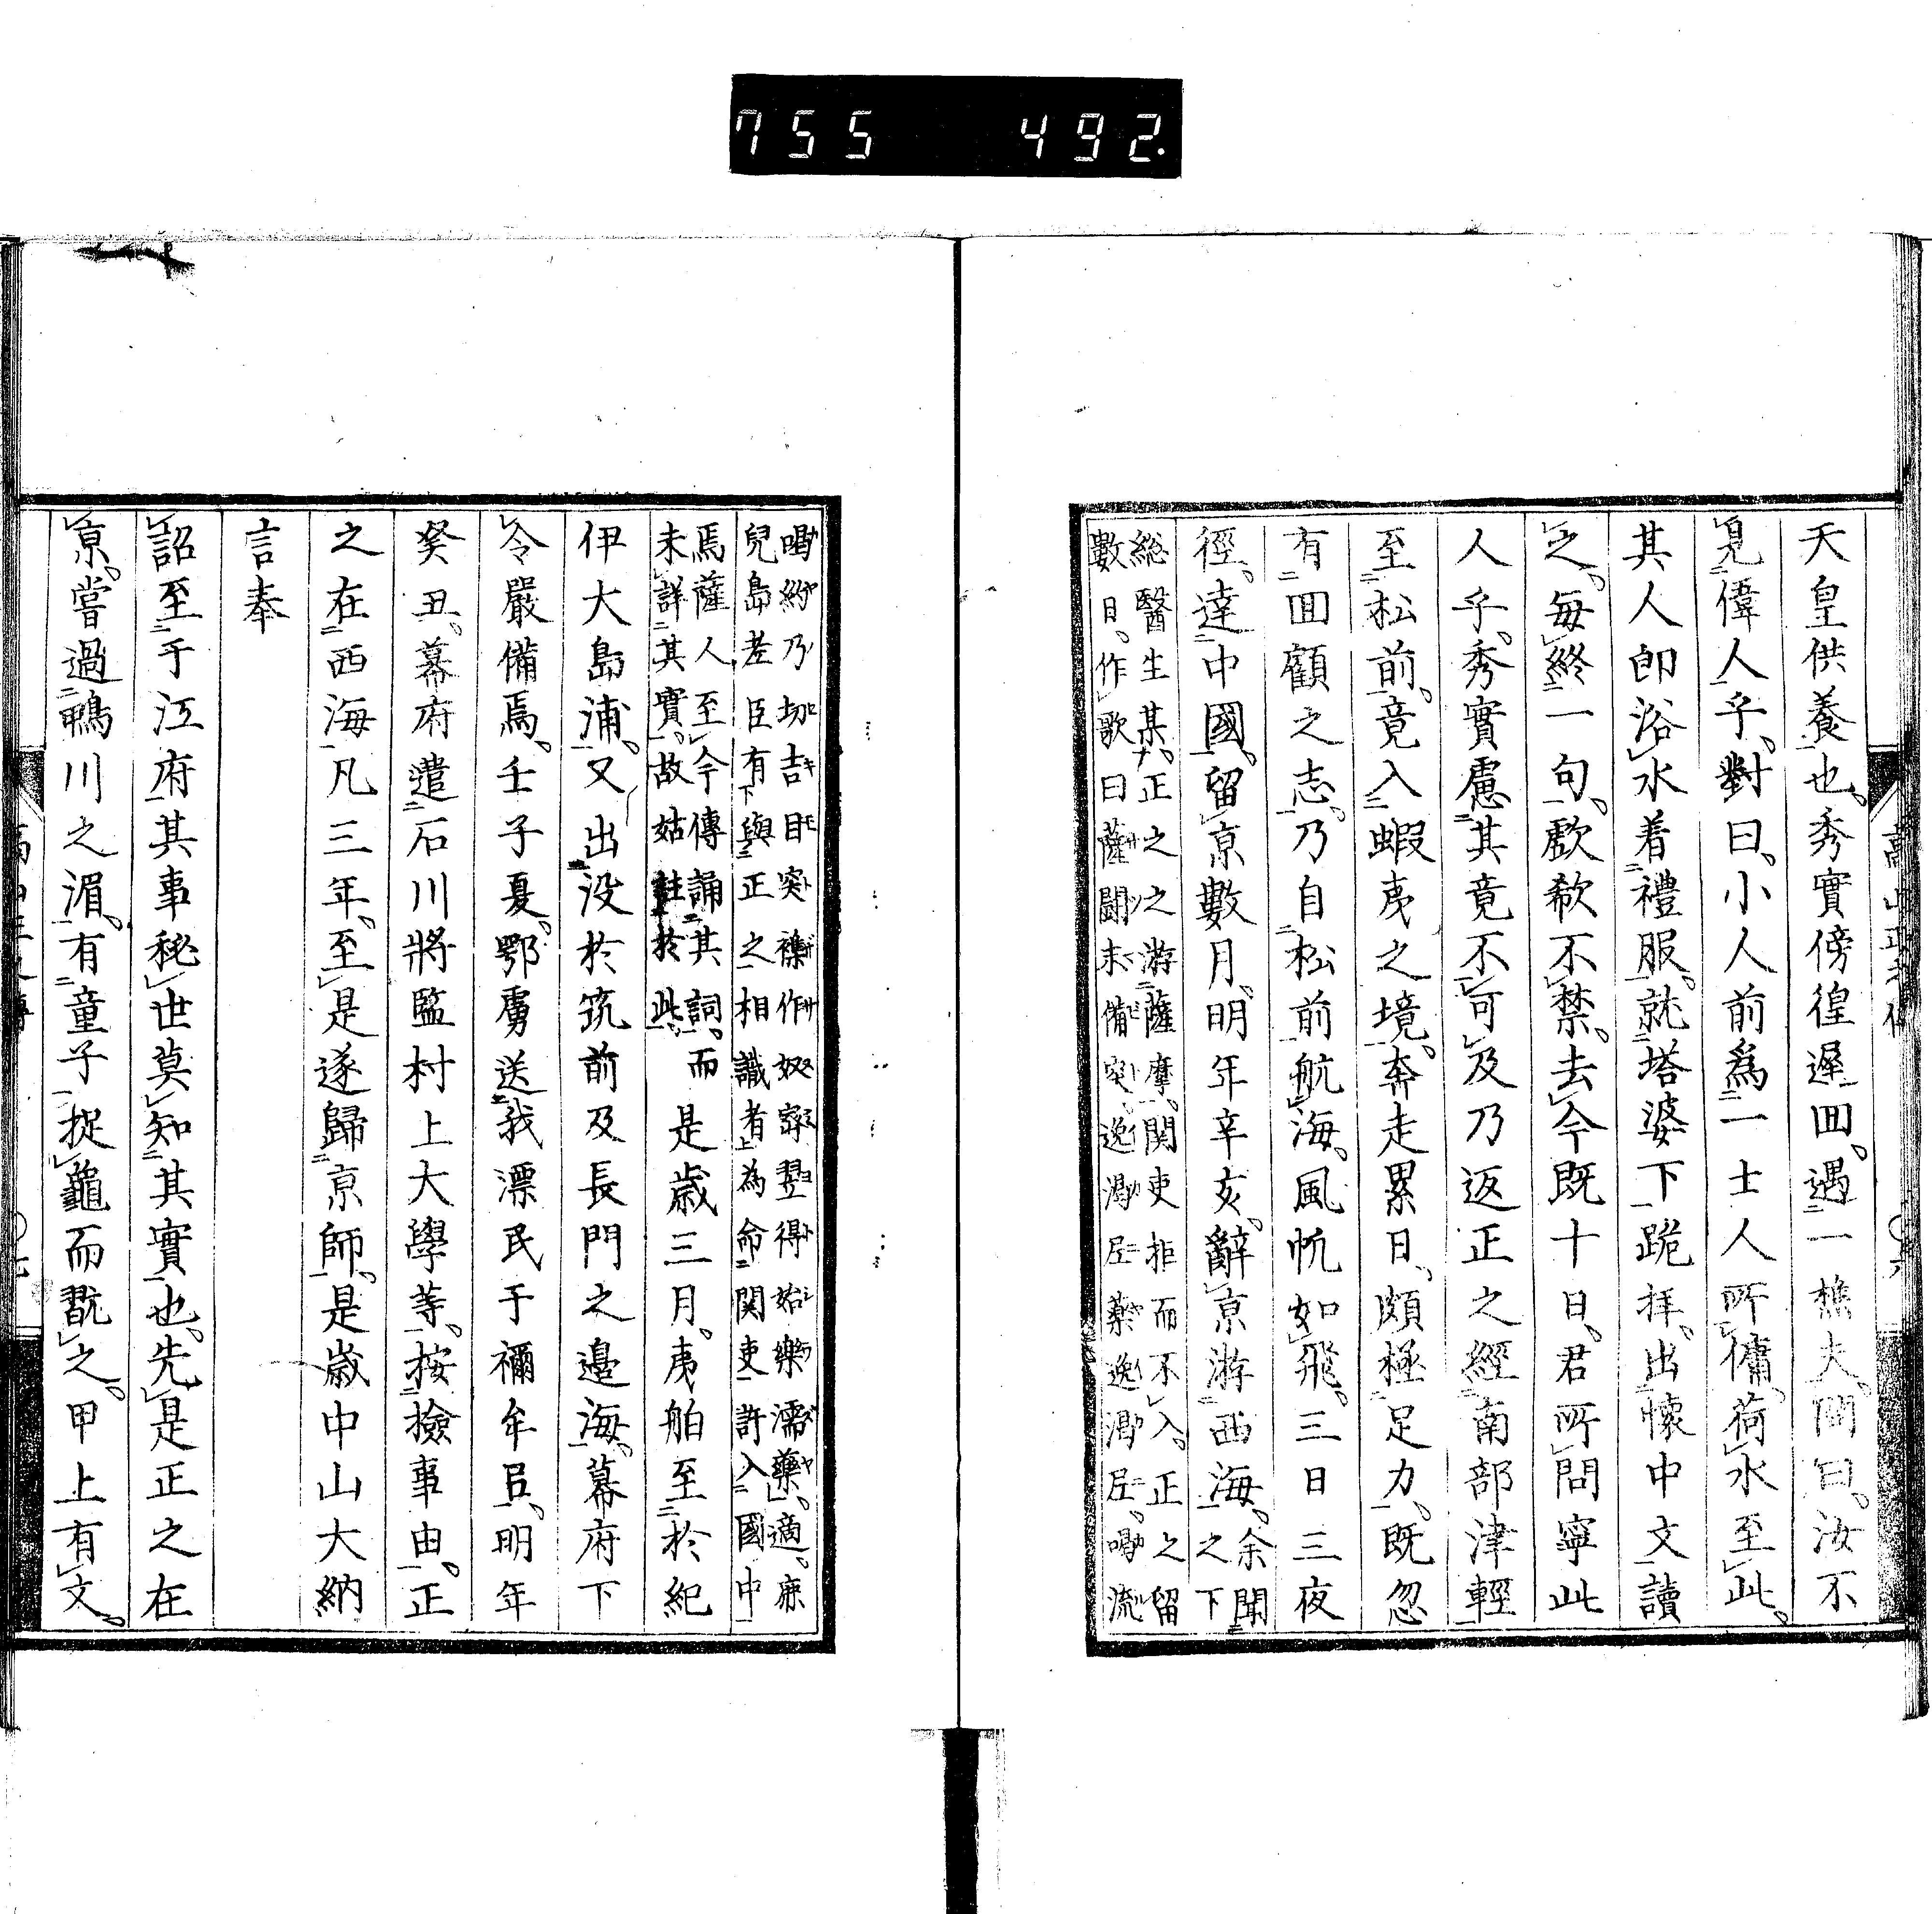 755 492.
天皇供養也秀實傍徨遲囬遇一樵夫問曰汝不
見偉人乎對曰小人前爲一士人所傭荷水至此
其人卽浴水着禮服就塔婆下跪拝出懐中文讀
之每終一句歔欷不禁去今既十日君所問寧此
人乎秀實慮其竟不可及乃返正之經南部津輕
至松前竟入蝦夷之境奔走累日頗極足力既忽
有囬顧之志乃自松前航海風帆如飛三日三夜
徑達中國留亰數月明年辛亥辭亰游西海余聞
之下
総醫生某正之之游薩摩関吏拒而不入正之留
數日作歌曰薩闘末備突逸
喝約乃切吉目突襍作奴
得始樂濡藥適鹿
兒島差臣有與正之相識者為命関吏許入國中
焉薩人至今傳誦其詞而
未詳其實故姑註於此
是歳三月夷舶至於紀
伊大島浦又出没於筑前及長門之邉海幕府下
令嚴備焉壬子夏鄂虜送我漂民于禰牟呂明年
癸丑幕府遣石川將監村上大學等按撿事由正
之在西海凡三年至是遂歸亰師是歳中山大納
言奉
詔至于江府其事秘世莫知其實也先是正之在
亰嘗過鴨川之湄有童子捉龜而翫之甲上有文